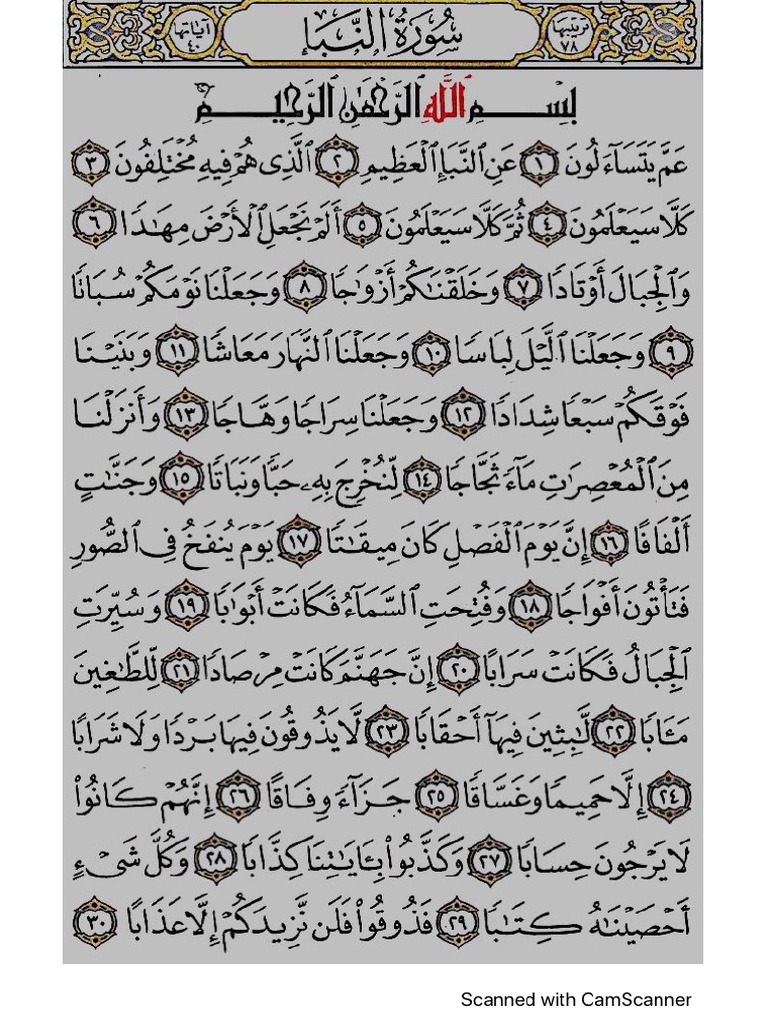 ترتيبها ٧٨ سُورَةُ النَّبَإِ آياتها ٤٠
بِسْمِ ٱللَّهِ ٱلرَّحْمَٰنِ ٱلرَّحِيمِ
عَمَّ يَتَسَآءَلُونَ ١ عَنِ ٱلنَّبَإِ ٱلْعَظِيمِ ٢ ٱلَّذِى هُمْ فِيهِ مُخْتَلِفُونَ ٣
كَلَّا سَيَعْلَمُونَ ٤ ثُمَّ كَلَّا سَيَعْلَمُونَ ٥ أَلَمْ نَجْعَلِ ٱلْأَرْضَ مِهَٰدًا ٦
وَٱلْجِبَالَ أَوْتَادًا ٧ وَخَلَقْنَٰكُمْ أَزْوَٰجًا ٨ وَجَعَلْنَا نَوْمَكُمْ سُبَاتًا
٩ وَجَعَلْنَا ٱلَّيْلَ لِبَاسًا ١٠ وَجَعَلْنَا ٱلنَّهَارَ مَعَاشًا ١١ وَبَنَيْنَا
فَوْقَكُمْ سَبْعًا شِدَادًا ١٢ وَجَعَلْنَا سِرَاجًا وَهَّاجًا ١٣ وَأَنزَلْنَا
مِنَ ٱلْمُعْصِرَٰتِ مَآءً ثَجَّاجًا ١٤ لِّنُخْرِجَ بِهِۦ حَبًّا وَنَبَاتًا ١٥ وَجَنَّٰتٍ
أَلْفَافًا ١٦ إِنَّ يَوْمَ ٱلْفَصْلِ كَانَ مِيقَٰتًا ١٧ يَوْمَ يُنفَخُ فِى ٱلصُّورِ
فَتَأْتُونَ أَفْوَاجًا ١٨ وَفُتِحَتِ ٱلسَّمَآءُ فَكَانَتْ أَبْوَٰبًا ١٩ وَسُيِّرَتِ
ٱلْجِبَالُ فَكَانَتْ سَرَابًا ٢٠ إِنَّ جَهَنَّمَ كَانَتْ مِرْصَادًا ٢١ لِّلطَّٰغِينَ
مَـَٔابًا ٢٢ لَّٰبِثِينَ فِيهَآ أَحْقَابًا ٢٣ لَّا يَذُوقُونَ فِيهَا بَرْدًا وَلَا شَرَابًا
٢٤ إِلَّا حَمِيمًا وَغَسَّاقًا ٢٥ جَزَآءً وِفَاقًا ٢٦ إِنَّهُمْ كَانُوا۟
لَا يَرْجُونَ حِسَابًا ٢٧ وَكَذَّبُوا۟ بِـَٔايَٰتِنَا كِذَّابًا ٢٨ وَكُلَّ شَىْءٍ
أَحْصَيْنَٰهُ كِتَٰبًا ٢٩ فَذُوقُوا۟ فَلَن نَّزِيدَكُمْ إِلَّا عَذَابًا ٣٠
Scanned with CamScanner